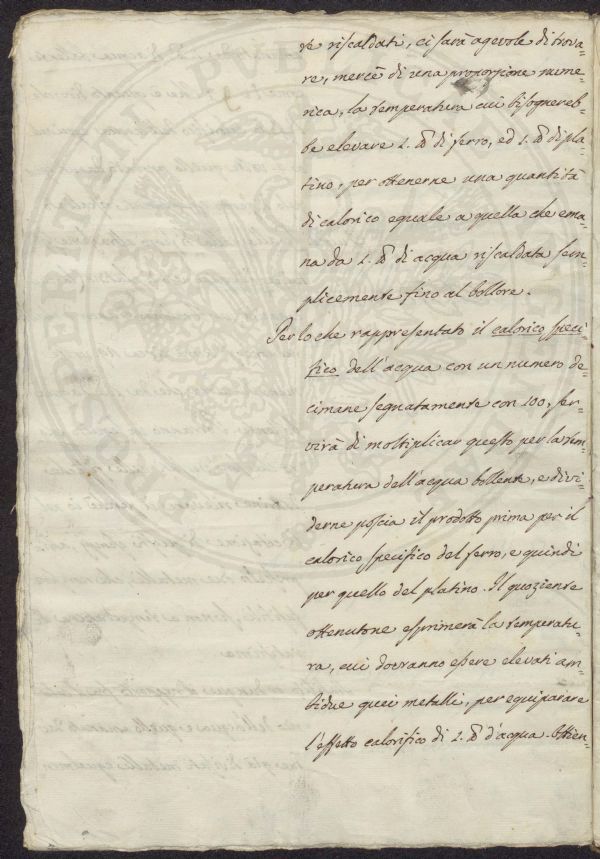 te riscaldati, ci sarà agevole di trova=
re, mercè di una proporzione nume=
rica, la temperatura cui bisognereb=
be elevare 1. ℔ di ferro, ed 1. ℔ di pla=
tino, per ottenerne una quantità
di calorico equale a quella che ema=
na da 1. ℔ di acqua riscaldata sem=
plicemente fino al bollore.
Perlochè rappresentato il calorico speci=
fico dell'acqua con un numero de=
cimane segnatamente con 100, ser=
virà di moltiplicar questo per la tem=
peratura dell'acqua bollente, e divi=
derne poscia il prodotto prima per il
calorico specifico del ferro, e quindi
per quello del platino. Il quoziente
ottenutone esprimerà la temperatu=
ra, cui dovranno essere elevati am=
bidue quei metalli, per equiparare
l'effetto calorifico di 1. ℔ d'acqua. Ottien=